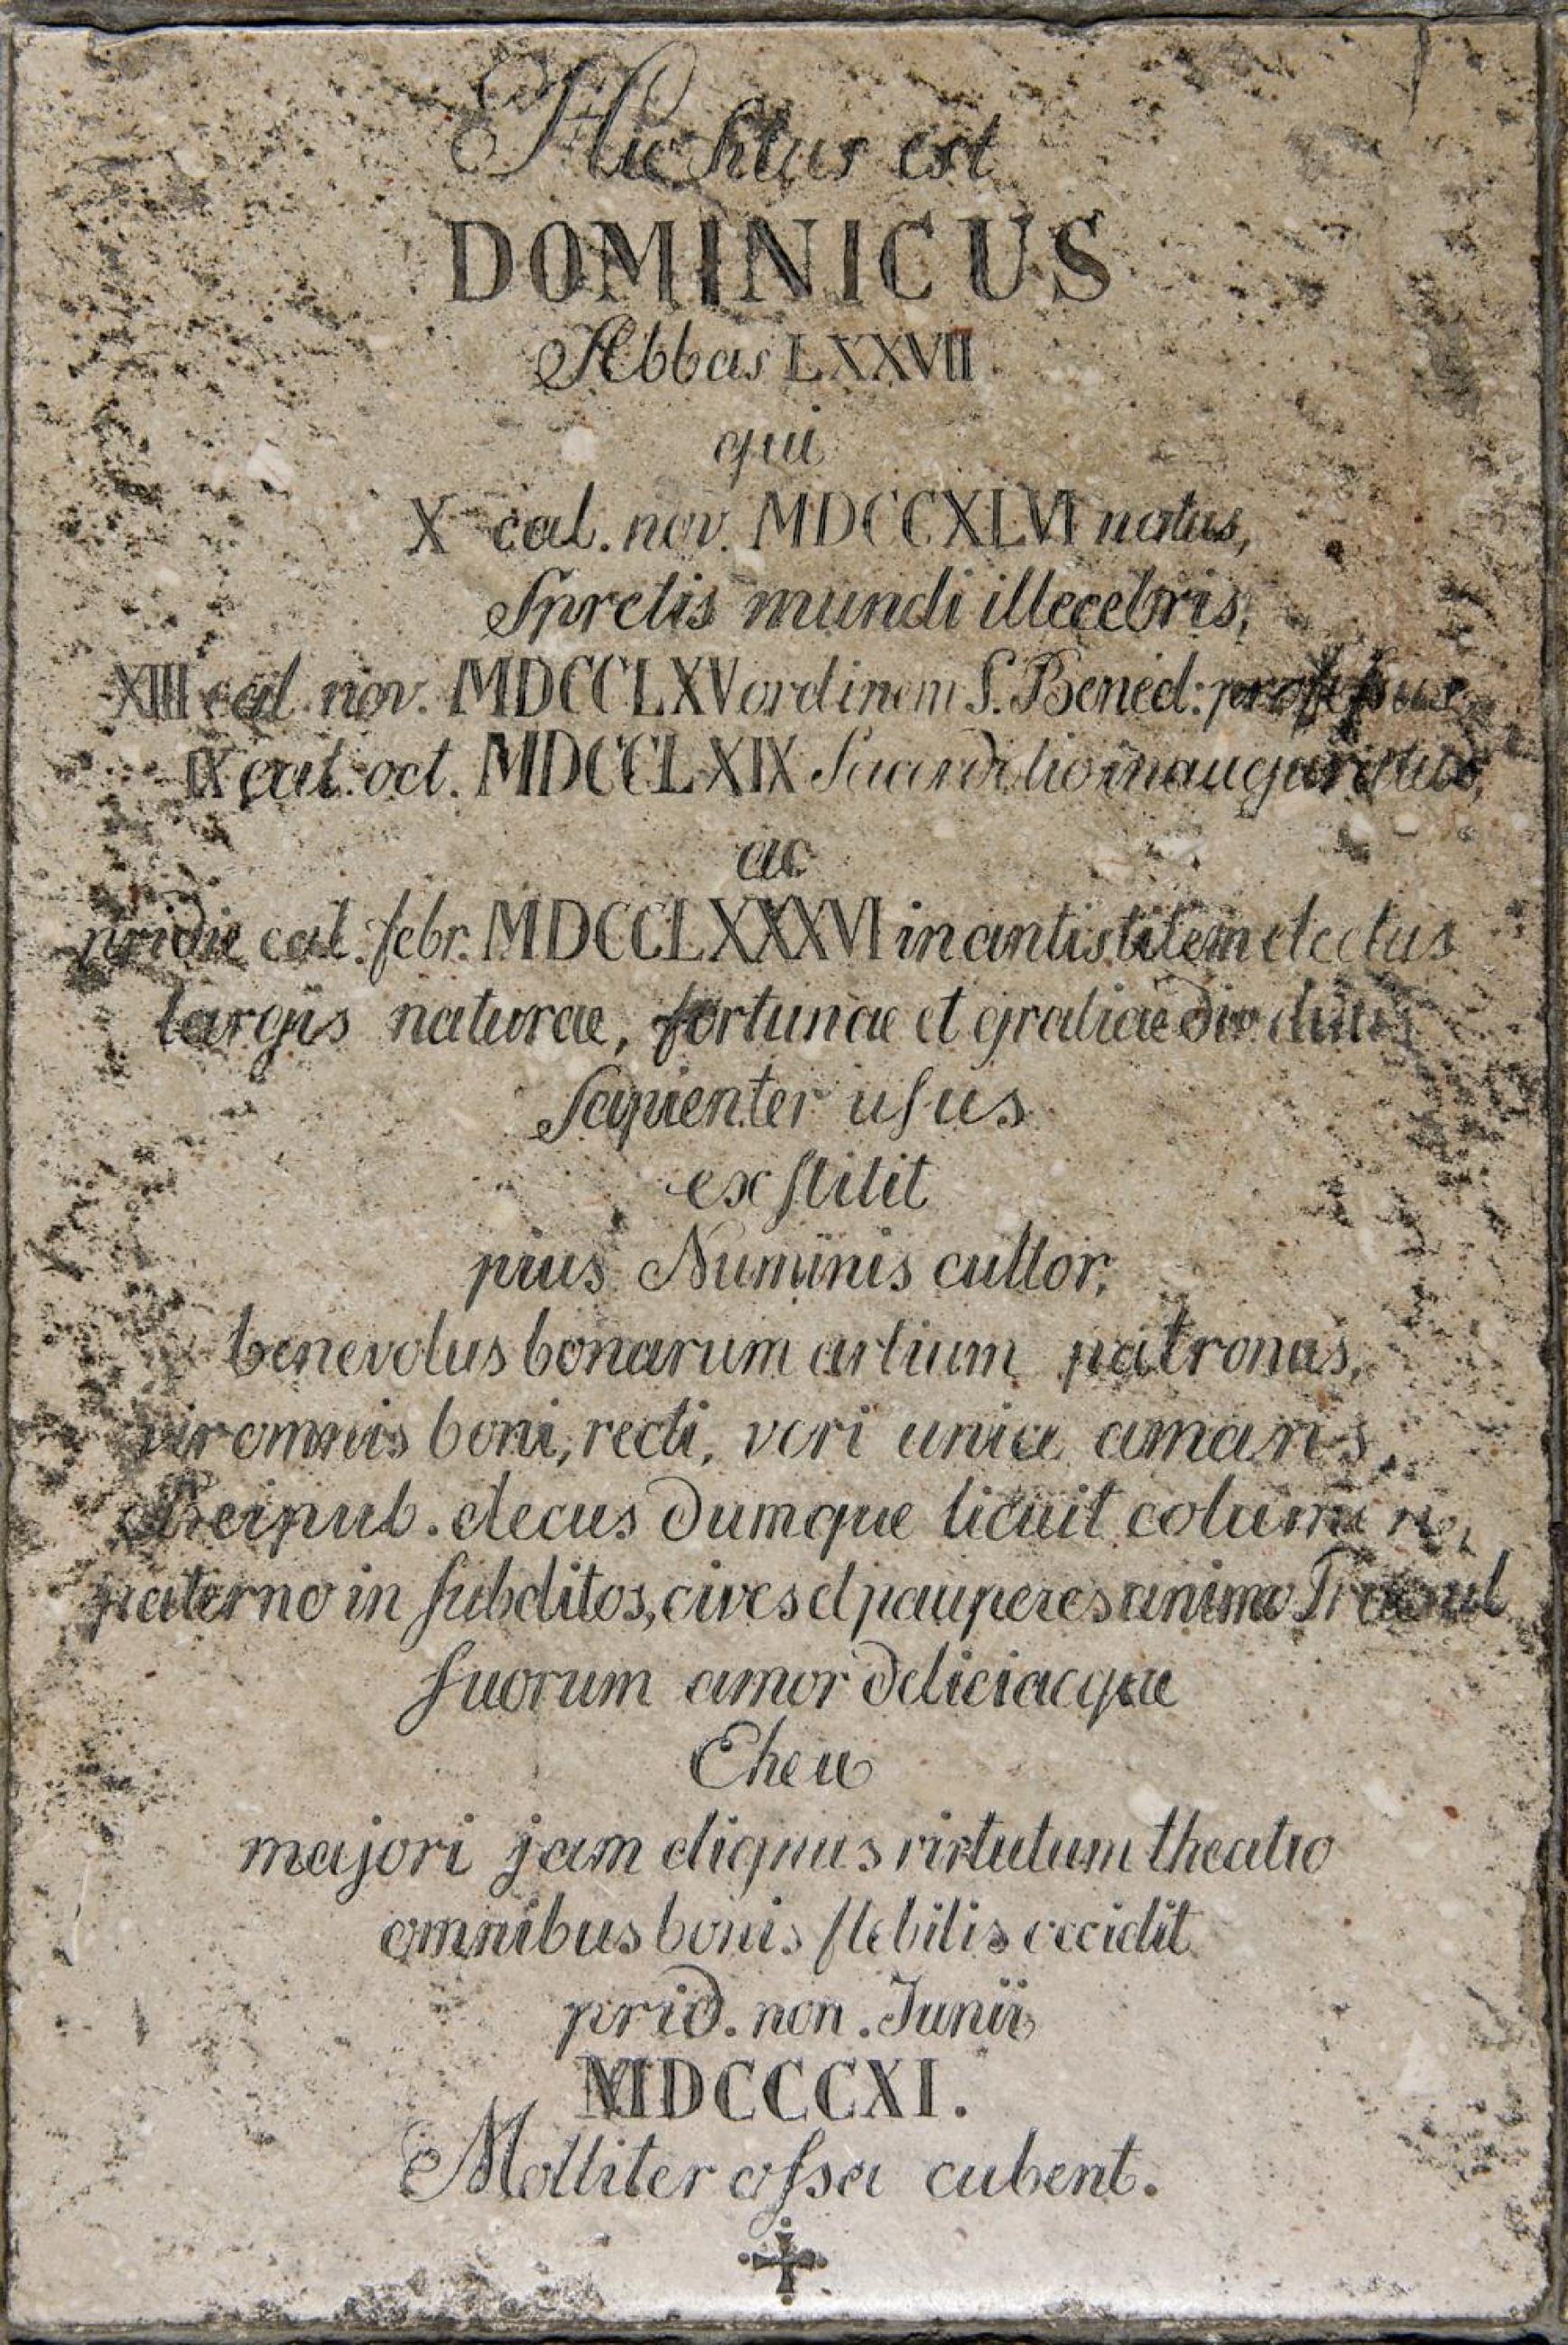 Hic situs est
DOMINICUS
Abbas LXXVII
qui
X cal. nov. MDCCXLVI natus,
Spretis mundi illecebris,
XIII cal. nov. MDCCLXV ordinem S. Bened: professus
IX cal. oct. MDCCLXIX Sacerdotio inauguratus,
ac
pridie cal. febr. MDCCLXXXVI in antistitem electus
largis naturae, fortunae et gratiae div.
sapienter usus
exstitit
pius Numinis cultor,
benevolus bonarum artium patronus,
vir omnis boni, recti, veri unice amans,
Reipub. decus dumque licuit columen,
paterno in subditos, cives et pauperes animo Praesul
suorum amor deliciaeque
Eheu
majori jam dignus virtutum theatro
omnibus bonis flebilis occidit
prid. non. Junii
MDCCCXI.
Molliter ossa cubent.